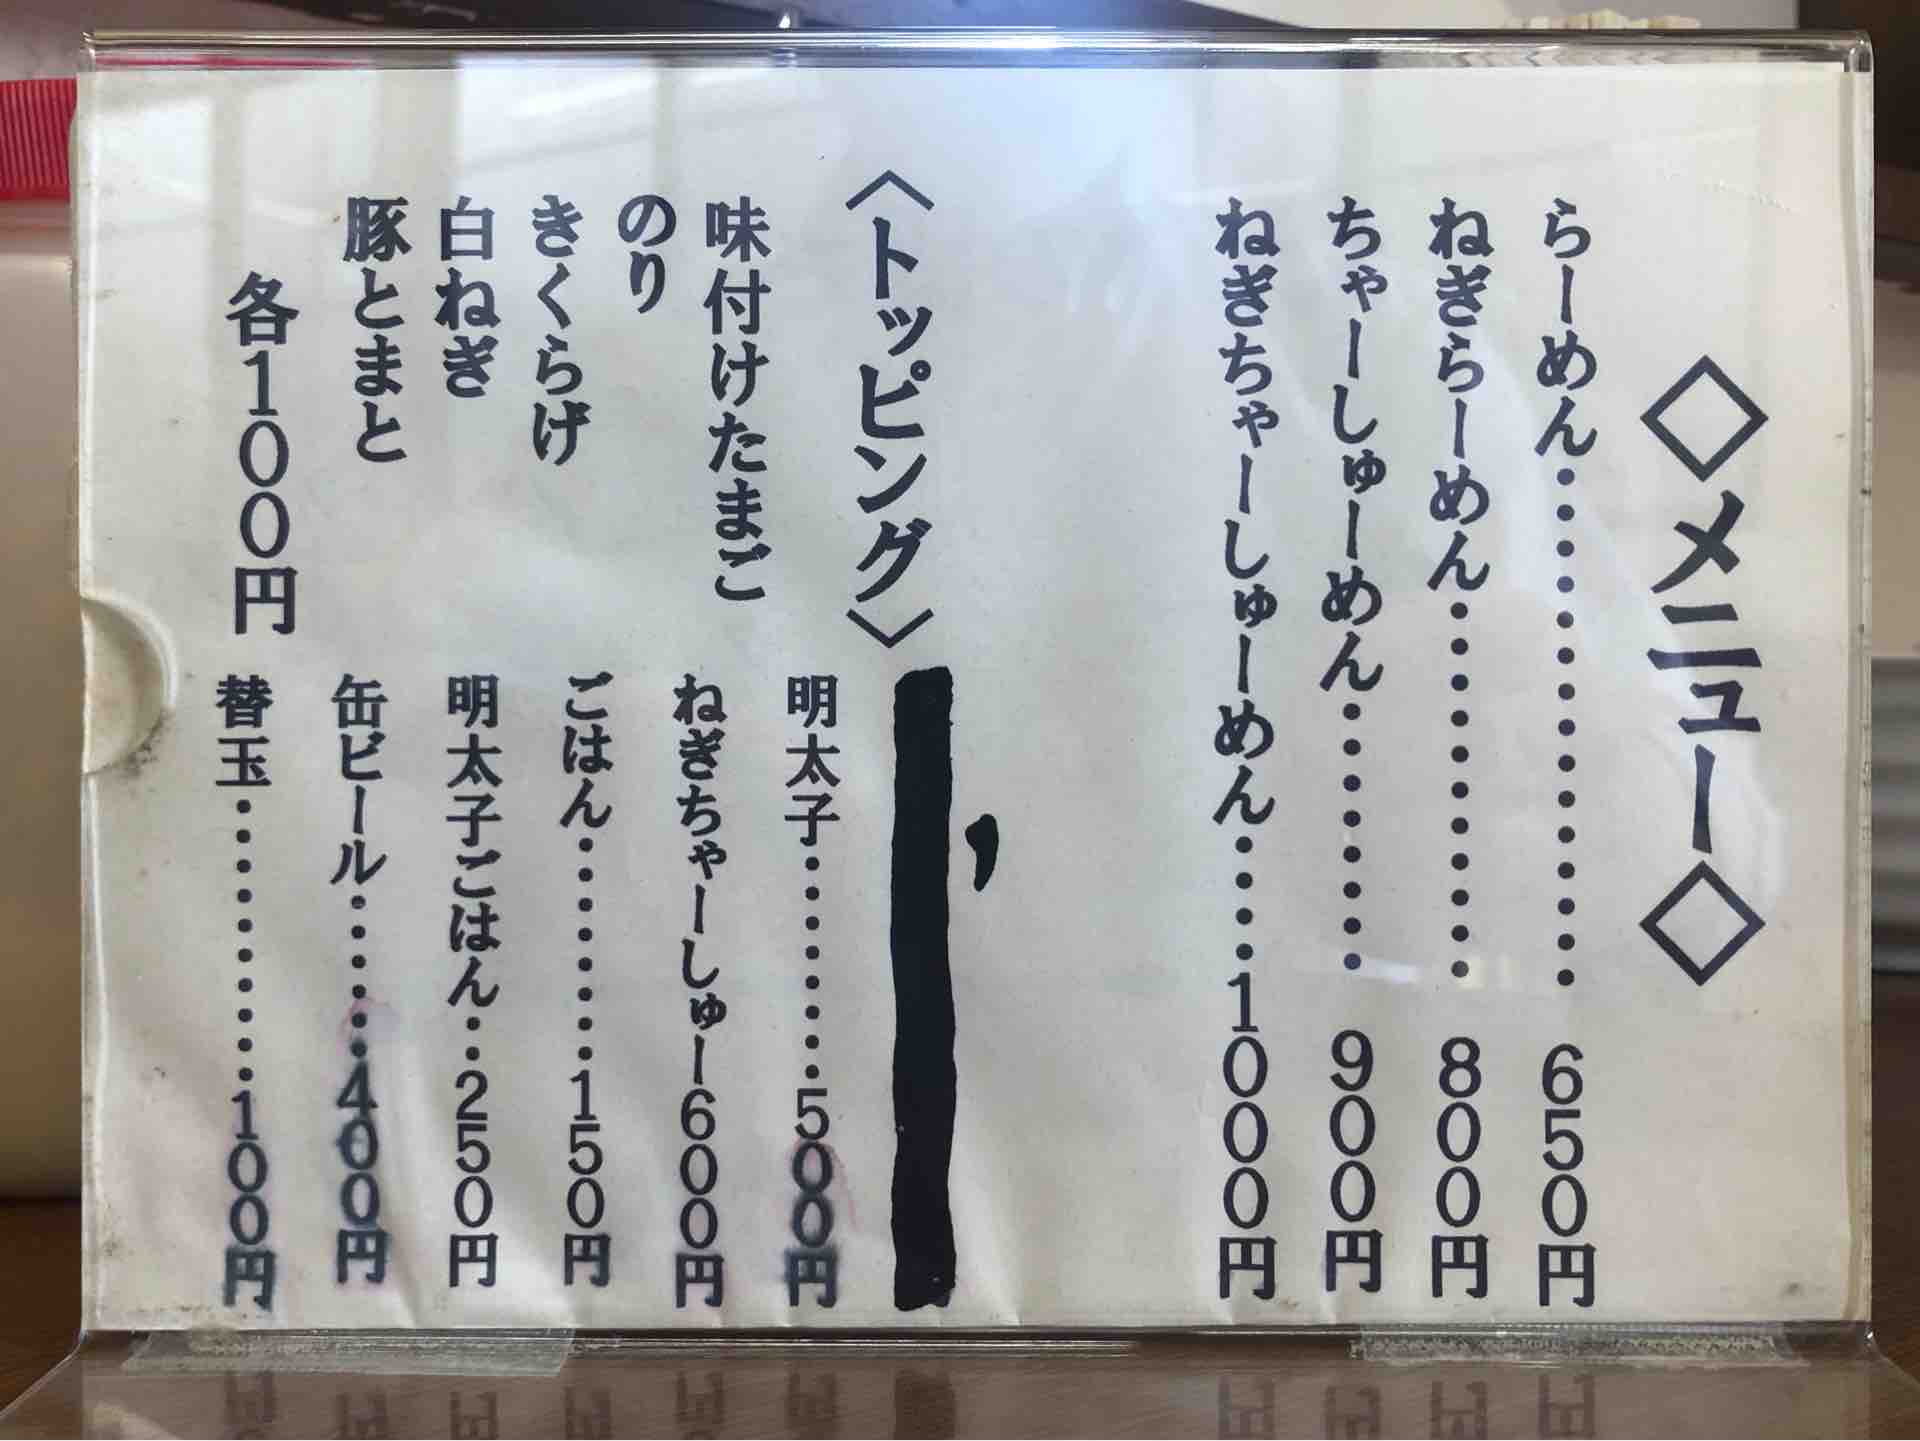 ◇メニュー◇
らーめん・・・・・・・・・・・・・・・650円
ねぎらーめん・・・・・・・・・・・800円
ちゃーしゅーめん・・・・・・・・900円
ねぎちゃーしゅーめん・・・・1000円
〈トッピング〉
味付けたまご
のり
きくらげ
白ねぎ
豚とまと
各100円
明太子・・・・・・・・500円
ねぎちゃーしゅー600円
ごはん・・・・・・・・150円
明太子ごはん・・250円
缶ビール・・・・・・400円
替玉・・・・・・・・・・100円